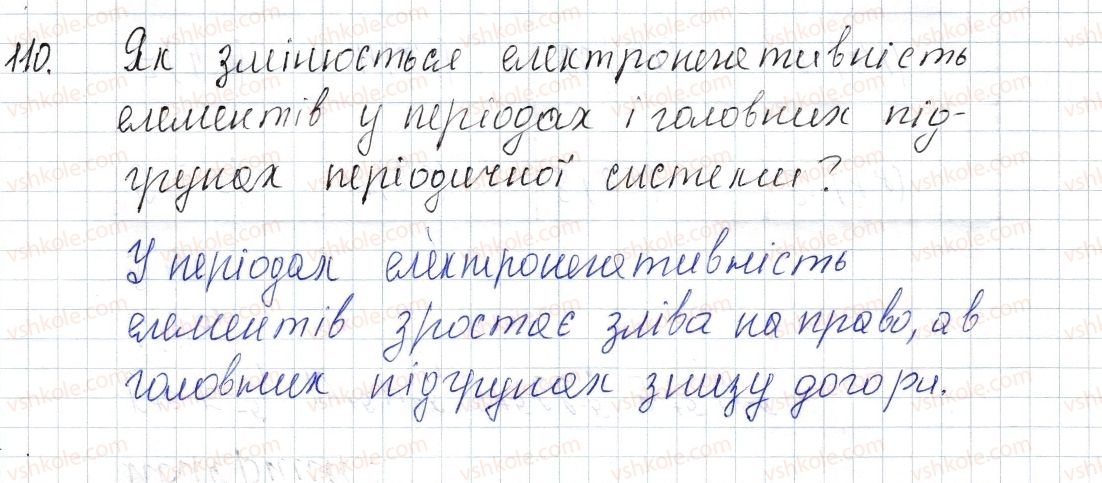 110. Як змінюється електронегативність
елементів у періодах і головних під-
групах періодичної системи?
У періодах електронегативність
елементів зростає зліва на право, а в
головних підгрупах знизу догори.
vshkole.com